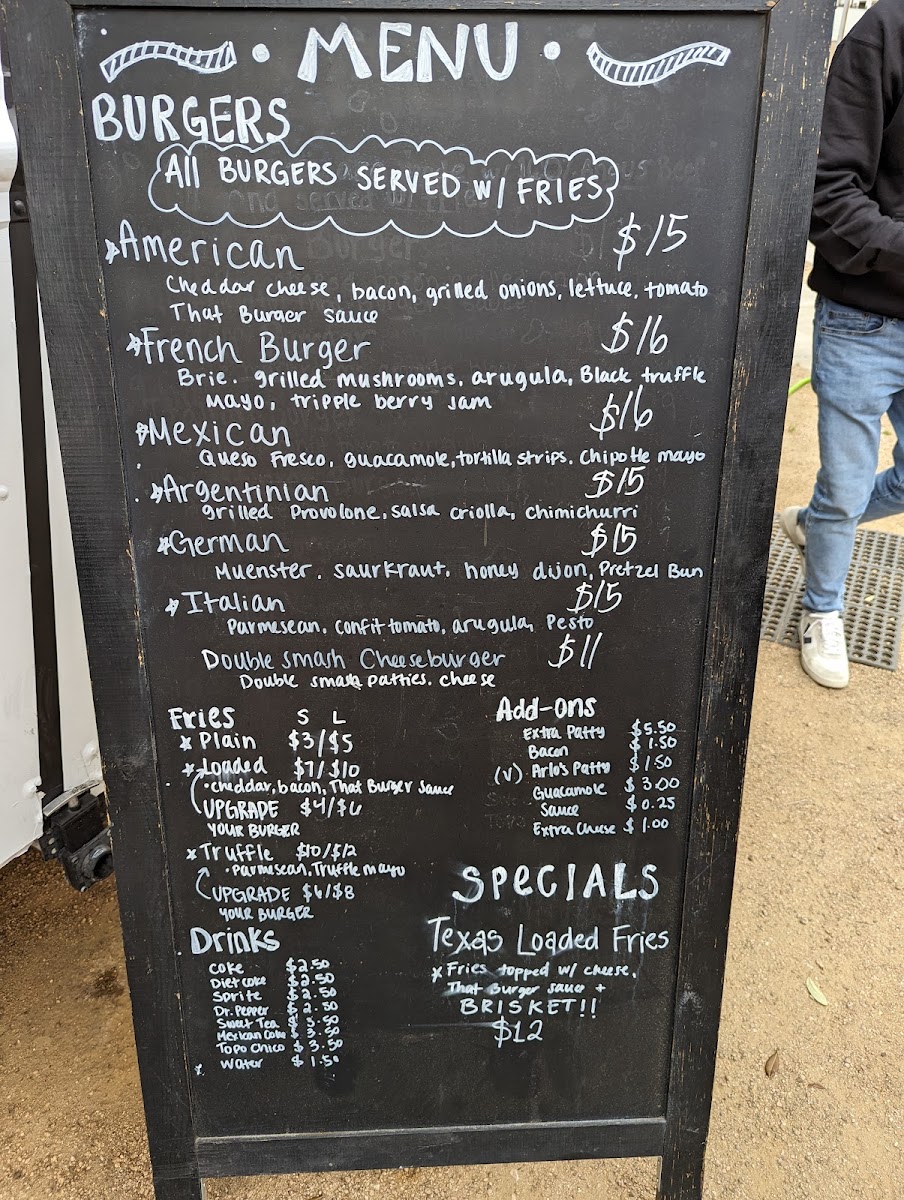 MENU
BURGERS
All BURGERS SERVED W/ FRIES
American $15
Cheddar cheese, bacon, grilled onions, lettuce, tomato
That Burger sauce
French Burger $16
Brie, grilled mushrooms, arugula, Black truffle
Mayo, tripple berry Jam
Mexican $16
Queso Fresco, guacamole, tortilla strips, Chipotle mayo
Argentinian $15
grilled Provolone, salsa criolla, chimichurri
German $15
Muenster, saurkraut, honey dijon, Pretzel Bun
Italian $15
Parmesean, confit tomato, arugula, Pesto
Double smash Cheeseburger $11
Double smash patties, cheese
Fries S L
Plain $3/$5
Loaded $7/$10
• cheddar, bacon, That Burger Sauce
UPGRADE $4/$6
YOUR BURGER
Truffle $10/$12
• Parmesean, Truffle mayo
UPGRADE $6/$8
YOUR BURGER
Drinks
Coke $2.50
Diet coke $2.50
Sprite $2.50
Dr. Pepper $2.50
Sweet Tea $3.50
Mexican Coke $3.50
Topo Chico $3.50
Water $1.50
Add-ons
Extra Patty $5.50
Bacon $1.50
(V) Arlo's Patty $1.50
Guacamole $3.00
Sauce $0.25
Extra Cheese $1.00
SPECIALS
Texas Loaded Fries
Fries topped w/ cheese,
That Burger sauce +
BRISKET!!
$12